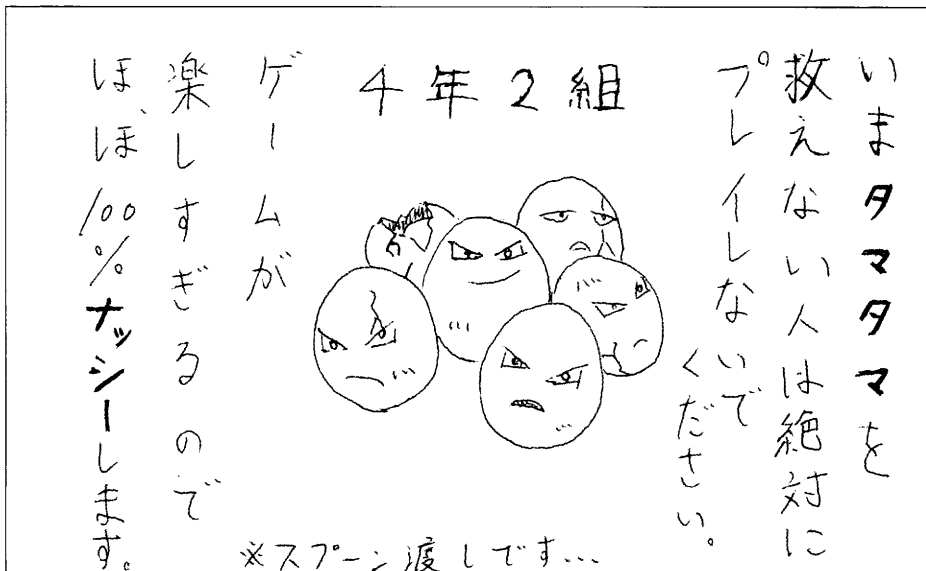 いまタマタマを
救えない人は絶対に
プレイしないで
ください。
4年2組
ゲームが
楽しすぎるので
ほぼ100%ナッシーします。
※スプーン渡しです…